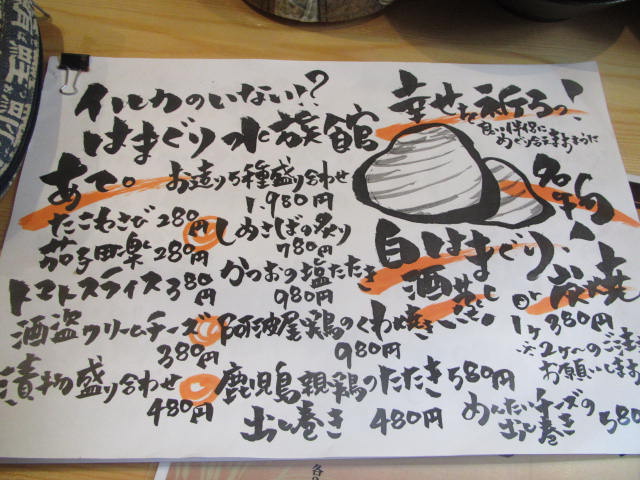 イルカのいない!?
はまぐり水族館
幸せを祈ろう!
良い伴侶に
めぐり合えますように
名物
白はまぐり
酒蒸し
or 炭焼
1ヶ 380円
※2ヶ〜の注文
お願いします
あて。
たこわさび 280円
茄子田楽 280円
トマトスライス 380円
酒盗クリームチーズ
380円
漬物盛り合わせ
480円
お造り5種盛り合わせ
1,980円
しめさばの炙り
780円
かつおの塩たたき
980円
阿波尾鶏のくわ焼き
980円
鹿児島親鶏のたたき 580円
出し巻き 480円
めんたいチーズの
出し巻き 580